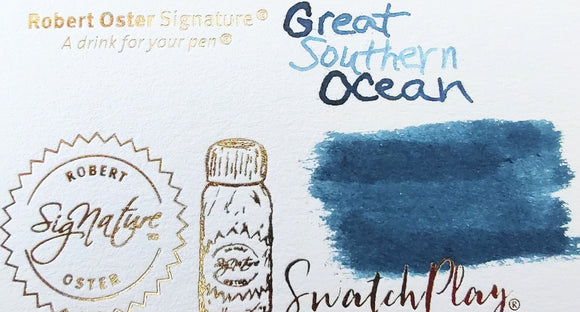 Robert Oster Signature®
A drink for your pen®
Great
Southern
Ocean
ROBERT
SigNature
OSTER
SigNature
OSTER
SwatchPlay®